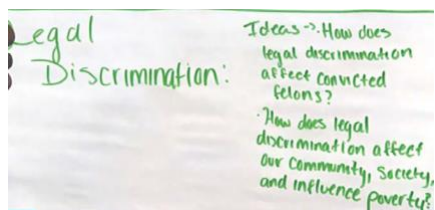 Legal
Discrimination:
Ideas -> · How does
legal discrimination
affect convicted
felons?
· How does legal
discrimination affect
our community, society,
and influence poverty?